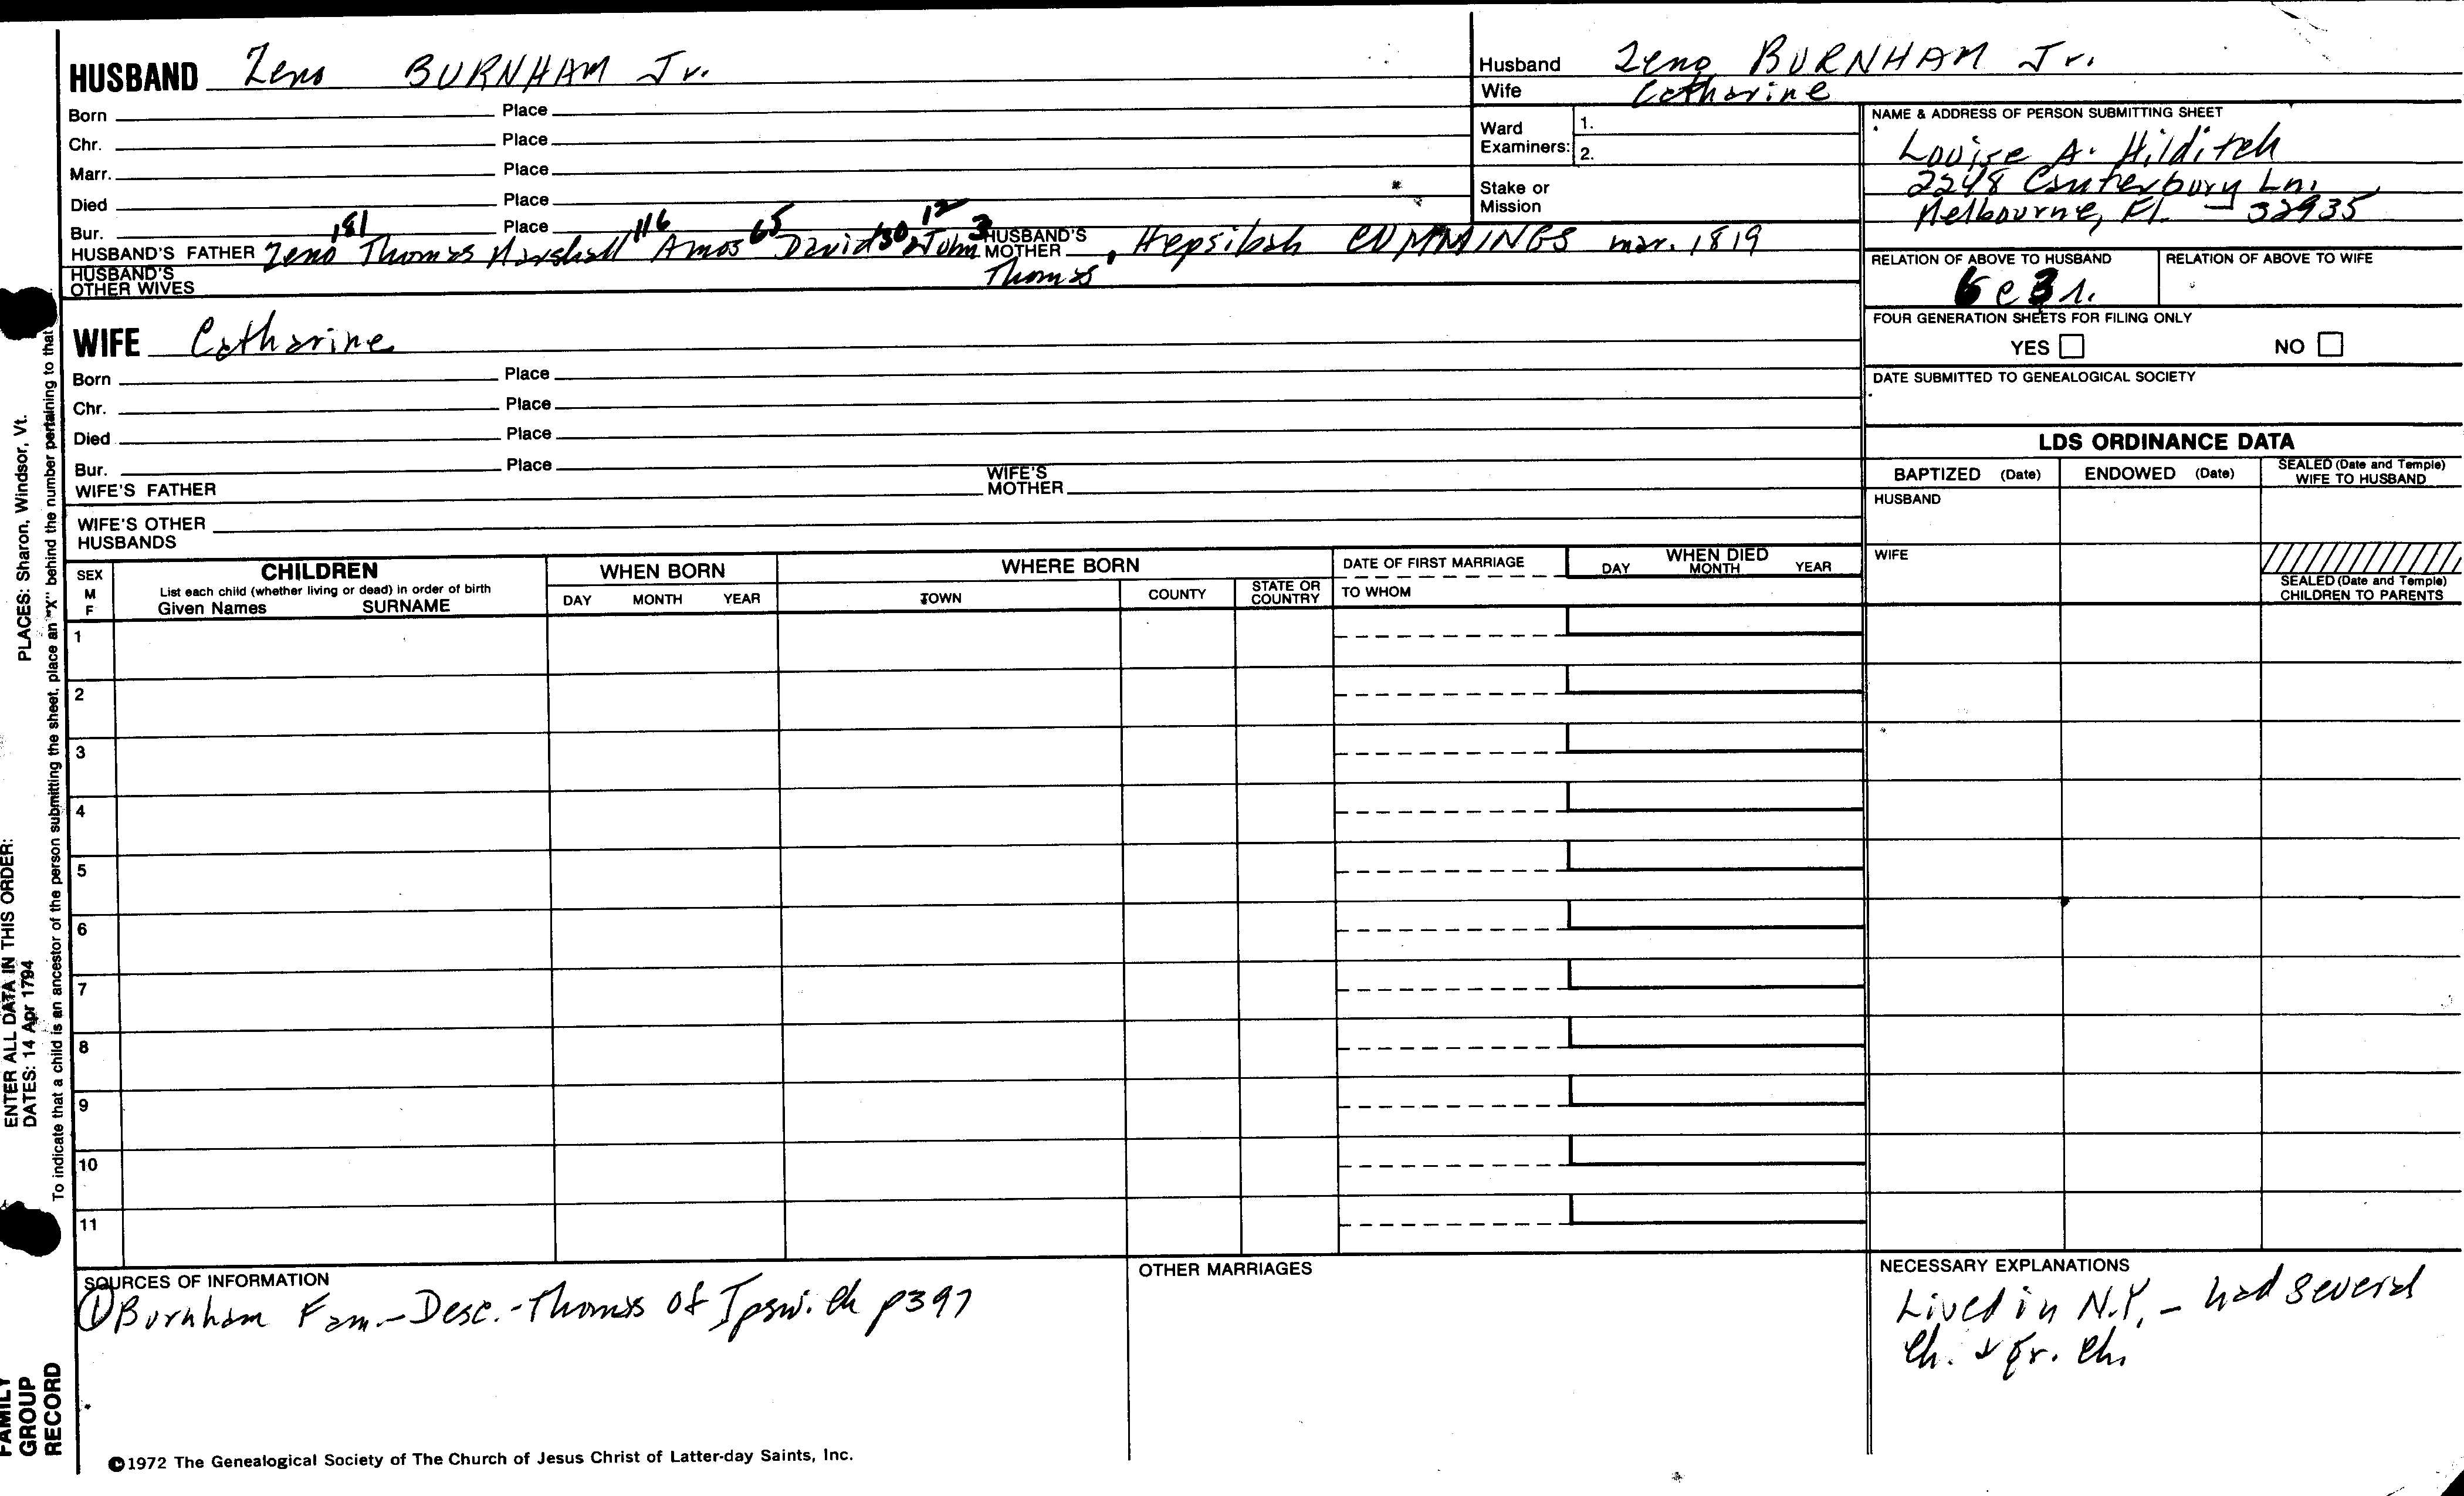 HUSBAND Zeno BURNHAM Jr.
Born Place
Chr. Place
Marr. Place
Died Place
Bur. Place
181 116 65 30 12 3
HUSBAND'S FATHER Zeno Thomas Marshall Amos David John Thomas HUSBAND'S MOTHER Hepsibah CUMMINGS mar. 1819
HUSBAND'S OTHER WIVES
Husband Zeno BURNHAM Jr.
Wife Catharine
Ward Examiners: 1.
2.
Stake or Mission
NAME & ADDRESS OF PERSON SUBMITTING SHEET
Louise A. Hilditch
2248 Canterbury Ln.
Melbourne, Fl. - 32935
RELATION OF ABOVE TO HUSBAND RELATION OF ABOVE TO WIFE
6 c 3 r.
FOUR GENERATION SHEETS FOR FILING ONLY
YES NO
DATE SUBMITTED TO GENEALOGICAL SOCIETY
WIFE Catharine
Born Place
Chr. Place
Died Place
Bur. Place
WIFE'S FATHER WIFE'S MOTHER
WIFE'S OTHER HUSBANDS
LDS ORDINANCE DATA
BAPTIZED (Date) ENDOWED (Date) SEALED (Date and Temple) WIFE TO HUSBAND
HUSBAND
WIFE
SEALED (Date and Temple) CHILDREN TO PARENTS
SEX M F
CHILDREN
List each child (whether living or dead) in order of birth
Given Names SURNAME
WHEN BORN
DAY MONTH YEAR
WHERE BORN
TOWN COUNTY STATE OR COUNTRY
DATE OF FIRST MARRIAGE
TO WHOM
WHEN DIED
DAY MONTH YEAR
1
2
3
4
5
6
7
8
9
10
11
SOURCES OF INFORMATION
① Burnham Fam.-Desc.-Thomas of Ipswich p397
OTHER MARRIAGES
NECESSARY EXPLANATIONS
Lived in N.Y. - had several
Ch. & gr. Ch.
©1972 The Genealogical Society of The Church of Jesus Christ of Latter-day Saints, Inc.
FAMILY GROUP RECORD
ENTER ALL DATA IN THIS ORDER:
DATES: 14 Apr 1794 PLACES: Sharon, Windsor, Vt.
To indicate that a child is an ancestor of the person submitting the sheet, place an "X" behind the number pertaining to that